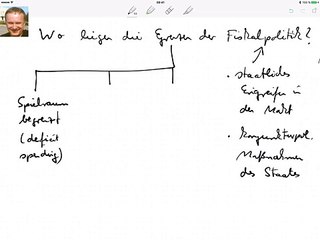 Wo liegen die Grenzen der Fiskalpolitik?
Spielraum
begrenzt
(deficit
spending)
· staatliches
Eingreifen in
den Markt
· Konjunkturpol.
Maßnahmen
des Staates